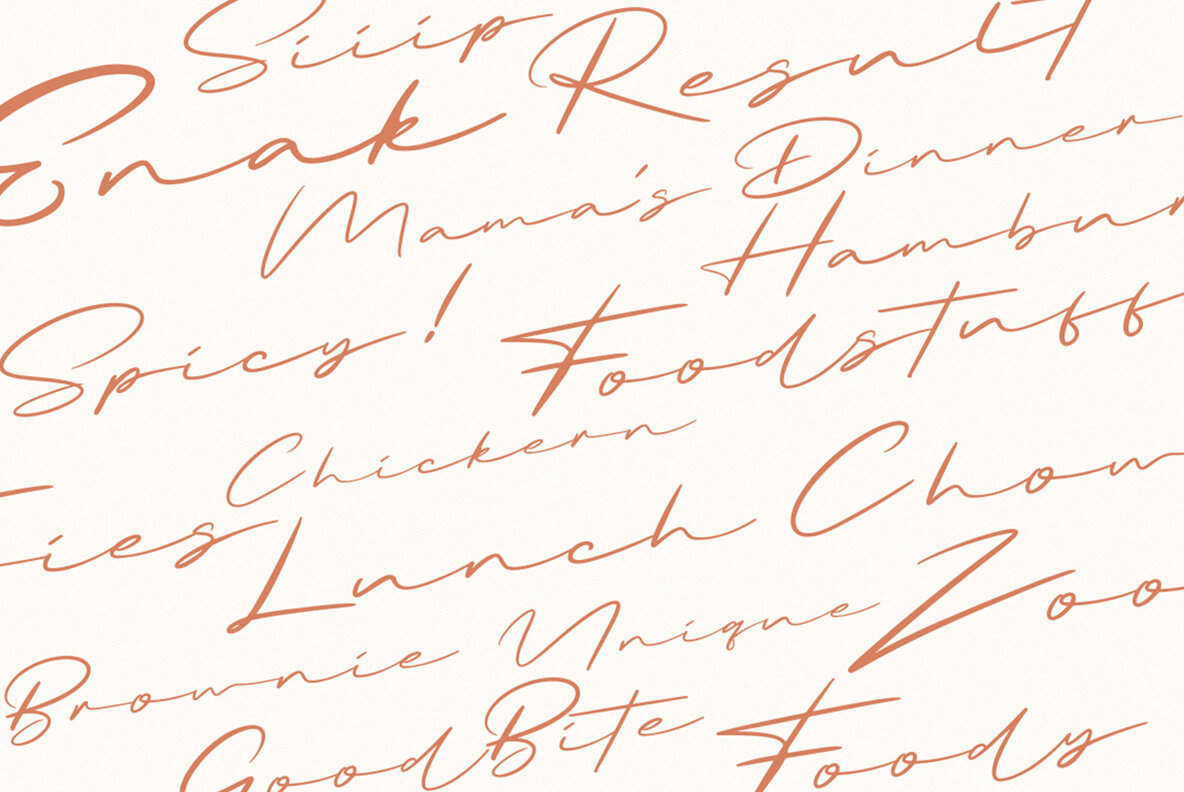 Siiip
Enak Result
Mama's Dinner
Hambur
Spicy! Foodstuff
Chickern
ies Lunch Chow
Brownie Unique Zoo
Good Bite Foody